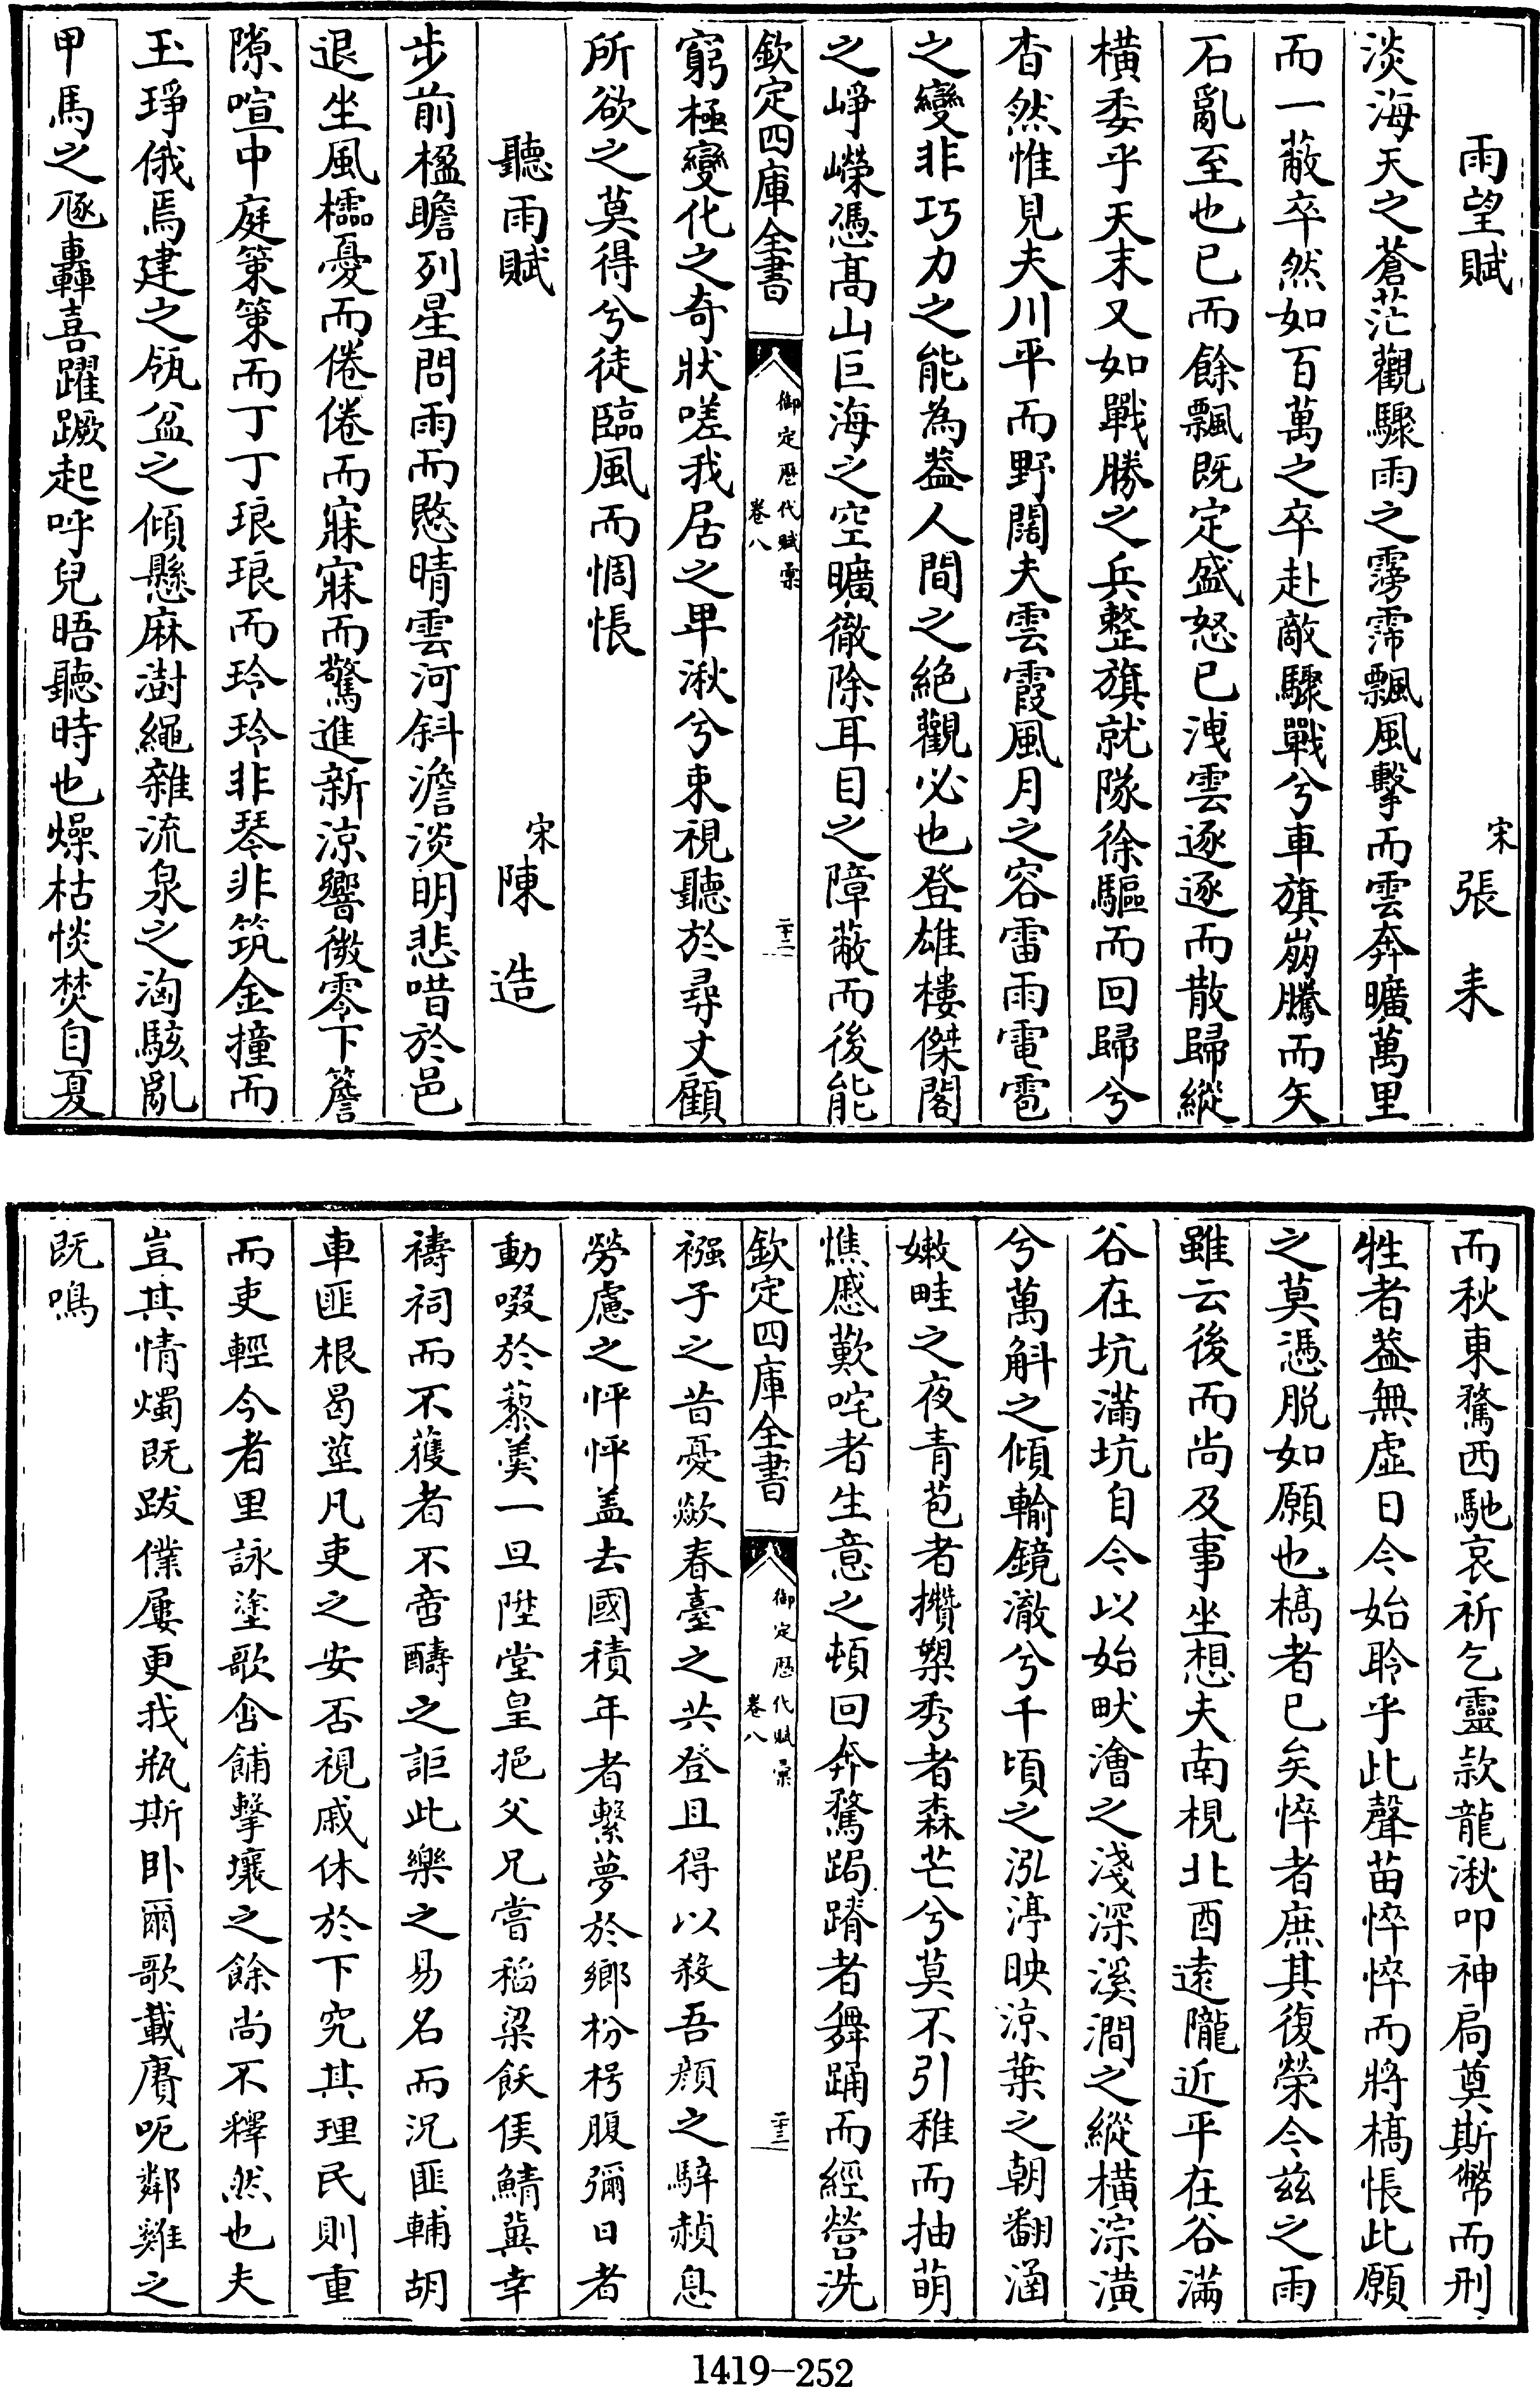 雨望賦
宋張耒
淡海天之蒼茫觀驟雨之霶霈飄風擊而雲奔曠萬里
而一蔽卒然如百萬之卒赴敵驟戰兮車旗崩騰而矢
石亂至也已而餘飄既定盛怒已洩雲逐逐而散歸縱
橫委乎天末又如戰勝之兵整旗就隊徐驅而回歸兮
杳然惟見夫川平而野闊夫雲霞風月之容雷雨電雹
之變非巧力之能為葢人間之絕觀必也登雄樓傑閣
之崢嶸憑高山巨海之空曠徹除耳目之障蔽而後能
欽定四庫全書
御定歷代賦彙
卷八
二十二
窮極變化之奇狀嗟我居之卑湫兮束視聽於尋丈顧
所欲之莫得兮徒臨風而惆悵
聽雨賦
宋陳造
步前楹瞻列星問雨而愍晴雲河斜澹淡明悲唶於邑
退坐風櫺憂而倦倦而寐寐而驚進新涼響微零下簷
隙喧中庭策策而丁丁琅琅而玲玲非琴非筑金撞而
玉琤俄焉建之瓴盆之傾懸麻澍繩雜流泉之洶駭亂
甲馬之豗轟喜躍蹶起呼兒晤聽時也燥枯惔焚自夏
而秋東騖西馳哀祈乞靈款龍湫叩神扃奠斯幣而刑
牲者葢無虛日今始聆乎此聲苗悴悴而將槁悵此願
之莫憑脫如願也槁者已矣悴者庶其復榮今兹之雨
雖云後而尚及事坐想夫南梘北酉遠隴近平在谷滿
谷在坑滿坑自今以始畎澮之淺深溪澗之縱橫淙潢
兮萬斛之傾輸鏡澈兮千頃之泓渟映涼葉之朝翻涵
嫩畦之夜青苞者攢槊秀者森芒兮莫不引稚而抽萌
憔慼歎咤者生意之頓回奔騖跼蹐者舞踊而經營洗
欽定四庫全書
御定歷代賦彙
卷八
二十三
襁子之昔憂歘春臺之共登且得以殺吾顔之騂赬息
勞慮之怦怦盖去國積年者繫夢於鄉枌枵腹彌日者
動啜於藜羹一旦陞堂皇挹父兄嘗稻粱飫侯鯖冀幸
禱祠而不蒦者不啻醻之詎此樂之易名而況匪輔胡
車匪根曷莖凡吏之安否視戚休於下究其理民則重
而吏輕今者里詠塗歌含餔擊壤之餘尚不釋然也夫
豈其情燭既跋僕屢更我瓶斯卧爾歌載賡呃鄰雞之
既鳴
1419-252